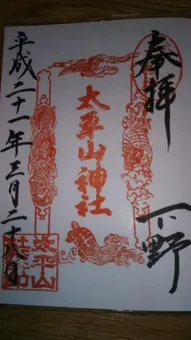 奉拝
下野
太平山神社
太平山
平成二十一年三月二十八日